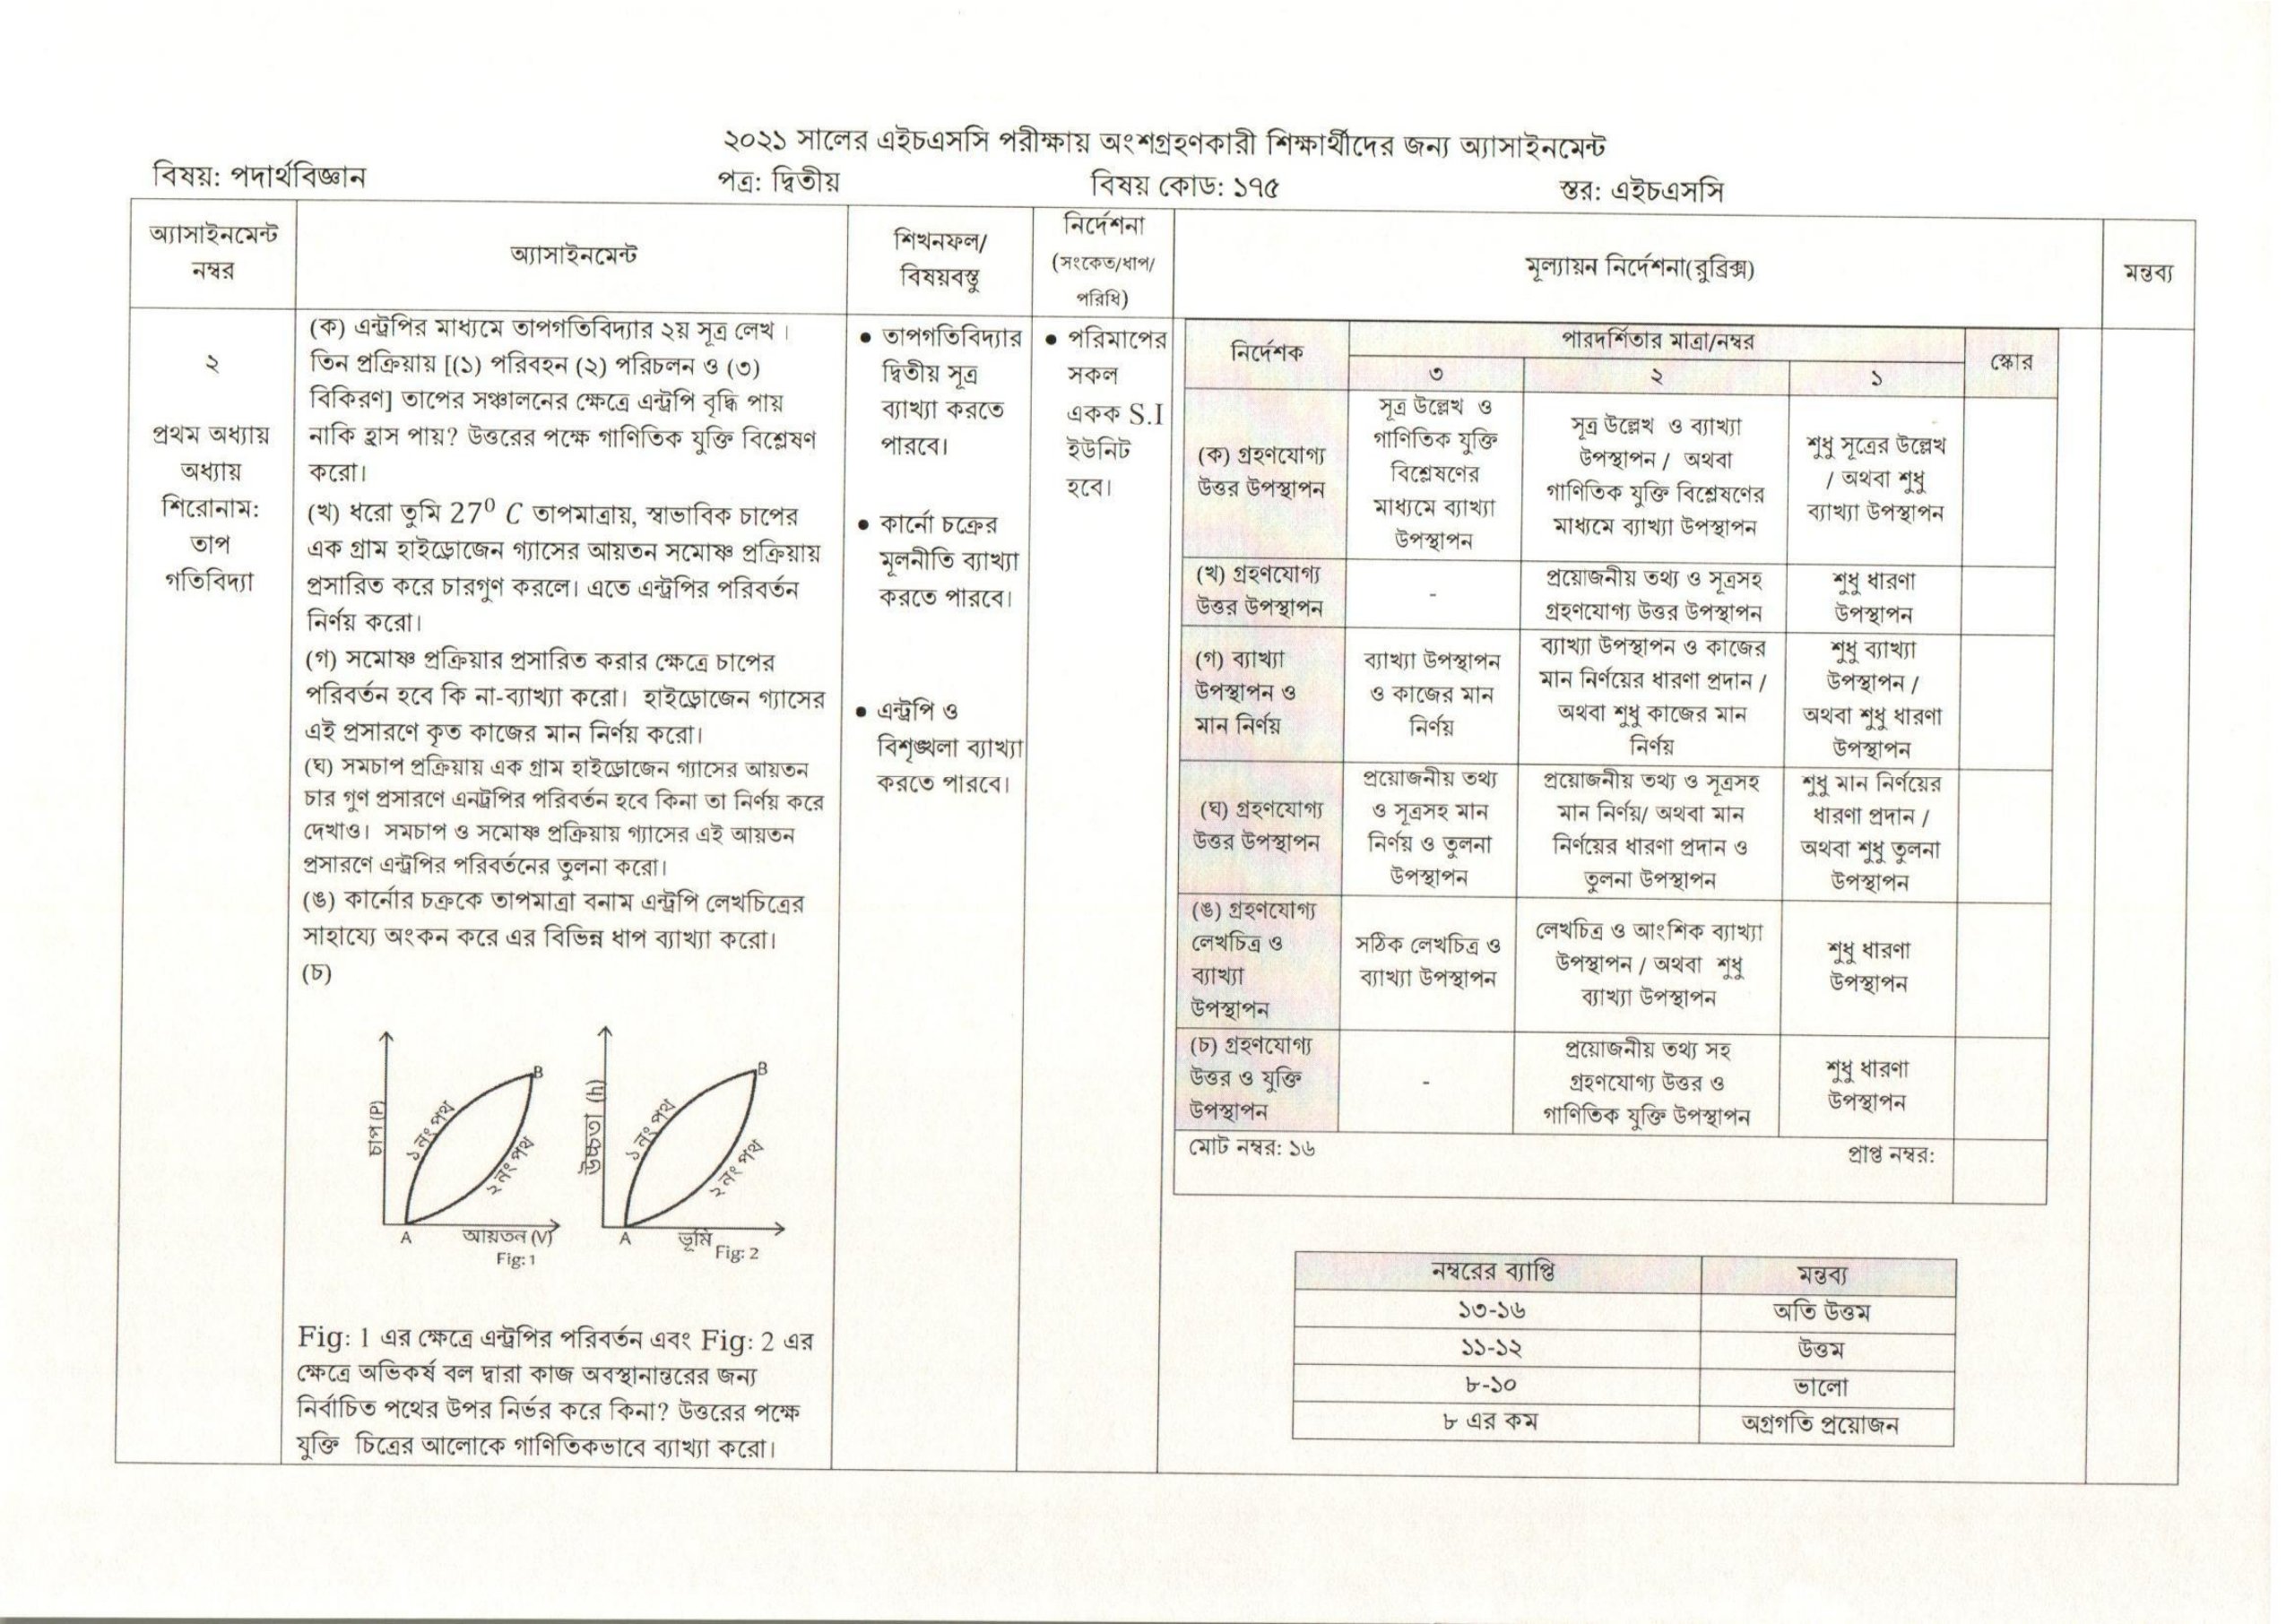 ২০২১ সালের এইচএসসি পরীক্ষায় অংশগ্রহণকারী শিক্ষার্থীদের জন্য অ্যাসাইনমেন্ট
বিষয়: পদার্থবিজ্ঞান পত্র: দ্বিতীয় বিষয় কোড: ১৭৫ স্তর: এইচএসসি
অ্যাসাইনমেন্ট
নম্বর
অ্যাসাইনমেন্ট
শিখনফল/
বিষয়বস্তু
নির্দেশনা
(সংকেত/ধাপ/
পরিধি)
মূল্যায়ন নির্দেশনা(রুব্রিক্স)
মন্তব্য
২
প্রথম অধ্যায়
অধ্যায়
শিরোনাম:
তাপ
গতিবিদ্যা
(ক) এন্ট্রপির মাধ্যমে তাপগতিবিদ্যার ২য় সূত্র লেখ।
তিন প্রক্রিয়ায় [(১) পরিবহন (২) পরিচলন ও (৩)
বিকিরণ] তাপের সঞ্চালনের ক্ষেত্রে এন্ট্রপি বৃদ্ধি পায়
নাকি হ্রাস পায়? উত্তরের পক্ষে গাণিতিক যুক্তি বিশ্লেষণ
করো।
(খ) ধরো তুমি 27⁰ C তাপমাত্রায়, স্বাভাবিক চাপের
এক গ্রাম হাইড্রোজেন গ্যাসের আয়তন সমোষ্ণ প্রক্রিয়ায়
প্রসারিত করে চারগুণ করলে। এতে এন্ট্রপির পরিবর্তন
নির্ণয় করো।
(গ) সমোষ্ণ প্রক্রিয়ার প্রসারিত করার ক্ষেত্রে চাপের
পরিবর্তন হবে কি না-ব্যাখ্যা করো। হাইড্রোজেন গ্যাসের
এই প্রসারণে কৃত কাজের মান নির্ণয় করো।
(ঘ) সমচাপ প্রক্রিয়ায় এক গ্রাম হাইড্রোজেন গ্যাসের আয়তন
চার গুণ প্রসারণে এনট্রপির পরিবর্তন হবে কিনা তা নির্ণয় করে
দেখাও। সমচাপ ও সমোষ্ণ প্রক্রিয়ায় গ্যাসের এই আয়তন
প্রসারণে এন্ট্রপির পরিবর্তনের তুলনা করো।
(ঙ) কার্নোর চক্রকে তাপমাত্রা বনাম এন্ট্রপি লেখচিত্রের
সাহায্যে অংকন করে এর বিভিন্ন ধাপ ব্যাখ্যা করো।
(চ)
চাপ (P)
১ নং পথ
২ নং পথ
B
A
আয়তন (V)
Fig: 1
উচ্চতা (h)
১ নং পথ
২ নং পথ
B
A
ভূমি
Fig: 2
Fig: 1 এর ক্ষেত্রে এন্ট্রপির পরিবর্তন এবং Fig: 2 এর
ক্ষেত্রে অভিকর্ষ বল দ্বারা কাজ অবস্থানান্তরের জন্য
নির্বাচিত পথের উপর নির্ভর করে কিনা? উত্তরের পক্ষে
যুক্তি চিত্রের আলোকে গাণিতিকভাবে ব্যাখ্যা করো।
• তাপগতিবিদ্যার
দ্বিতীয় সূত্র
ব্যাখ্যা করতে
পারবে।
• কার্নো চক্রের
মূলনীতি ব্যাখ্যা
করতে পারবে।
• এন্ট্রপি ও
বিশৃঙ্খলা ব্যাখ্যা
করতে পারবে।
• পরিমাপের
সকল
একক S.I
ইউনিট
হবে।
নির্দেশক
পারদর্শিতার মাত্রা/নম্বর
স্কোর
৩ ২ ১
(ক) গ্রহণযোগ্য
উত্তর উপস্থাপন
সূত্র উল্লেখ ও
গাণিতিক যুক্তি
বিশ্লেষণের
মাধ্যমে ব্যাখ্যা
উপস্থাপন
সূত্র উল্লেখ ও ব্যাখ্যা
উপস্থাপন / অথবা
গাণিতিক যুক্তি বিশ্লেষণের
মাধ্যমে ব্যাখ্যা উপস্থাপন
শুধু সূত্রের উল্লেখ
/ অথবা শুধু
ব্যাখ্যা উপস্থাপন
(খ) গ্রহণযোগ্য
উত্তর উপস্থাপন
-
প্রয়োজনীয় তথ্য ও সূত্রসহ
গ্রহণযোগ্য উত্তর উপস্থাপন
শুধু ধারণা
উপস্থাপন
(গ) ব্যাখ্যা
উপস্থাপন ও
মান নির্ণয়
ব্যাখ্যা উপস্থাপন
ও কাজের মান
নির্ণয়
ব্যাখ্যা উপস্থাপন ও কাজের
মান নির্ণয়ের ধারণা প্রদান /
অথবা শুধু কাজের মান
নির্ণয়
শুধু ব্যাখ্যা
উপস্থাপন /
অথবা শুধু ধারণা
উপস্থাপন
(ঘ) গ্রহণযোগ্য
উত্তর উপস্থাপন
প্রয়োজনীয় তথ্য
ও সূত্রসহ মান
নির্ণয় ও তুলনা
উপস্থাপন
প্রয়োজনীয় তথ্য ও সূত্রসহ
মান নির্ণয়/ অথবা মান
নির্ণয়ের ধারণা প্রদান ও
তুলনা উপস্থাপন
শুধু মান নির্ণয়ের
ধারণা প্রদান /
অথবা শুধু তুলনা
উপস্থাপন
(ঙ) গ্রহণযোগ্য
লেখচিত্র ও
ব্যাখ্যা
উপস্থাপন
সঠিক লেখচিত্র ও
ব্যাখ্যা উপস্থাপন
লেখচিত্র ও আংশিক ব্যাখ্যা
উপস্থাপন / অথবা শুধু
ব্যাখ্যা উপস্থাপন
শুধু ধারণা
উপস্থাপন
(চ) গ্রহণযোগ্য
উত্তর ও যুক্তি
উপস্থাপন
-
প্রয়োজনীয় তথ্য সহ
গ্রহণযোগ্য উত্তর ও
গাণিতিক যুক্তি উপস্থাপন
শুধু ধারণা
উপস্থাপন
মোট নম্বর: ১৬ প্রাপ্ত নম্বর:
নম্বরের ব্যাপ্তি মন্তব্য
১৩-১৬ অতি উত্তম
১১-১২ উত্তম
৮-১০ ভালো
৮ এর কম অগ্রগতি প্রয়োজন